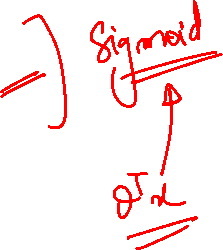 Sigmoid
θᵀx